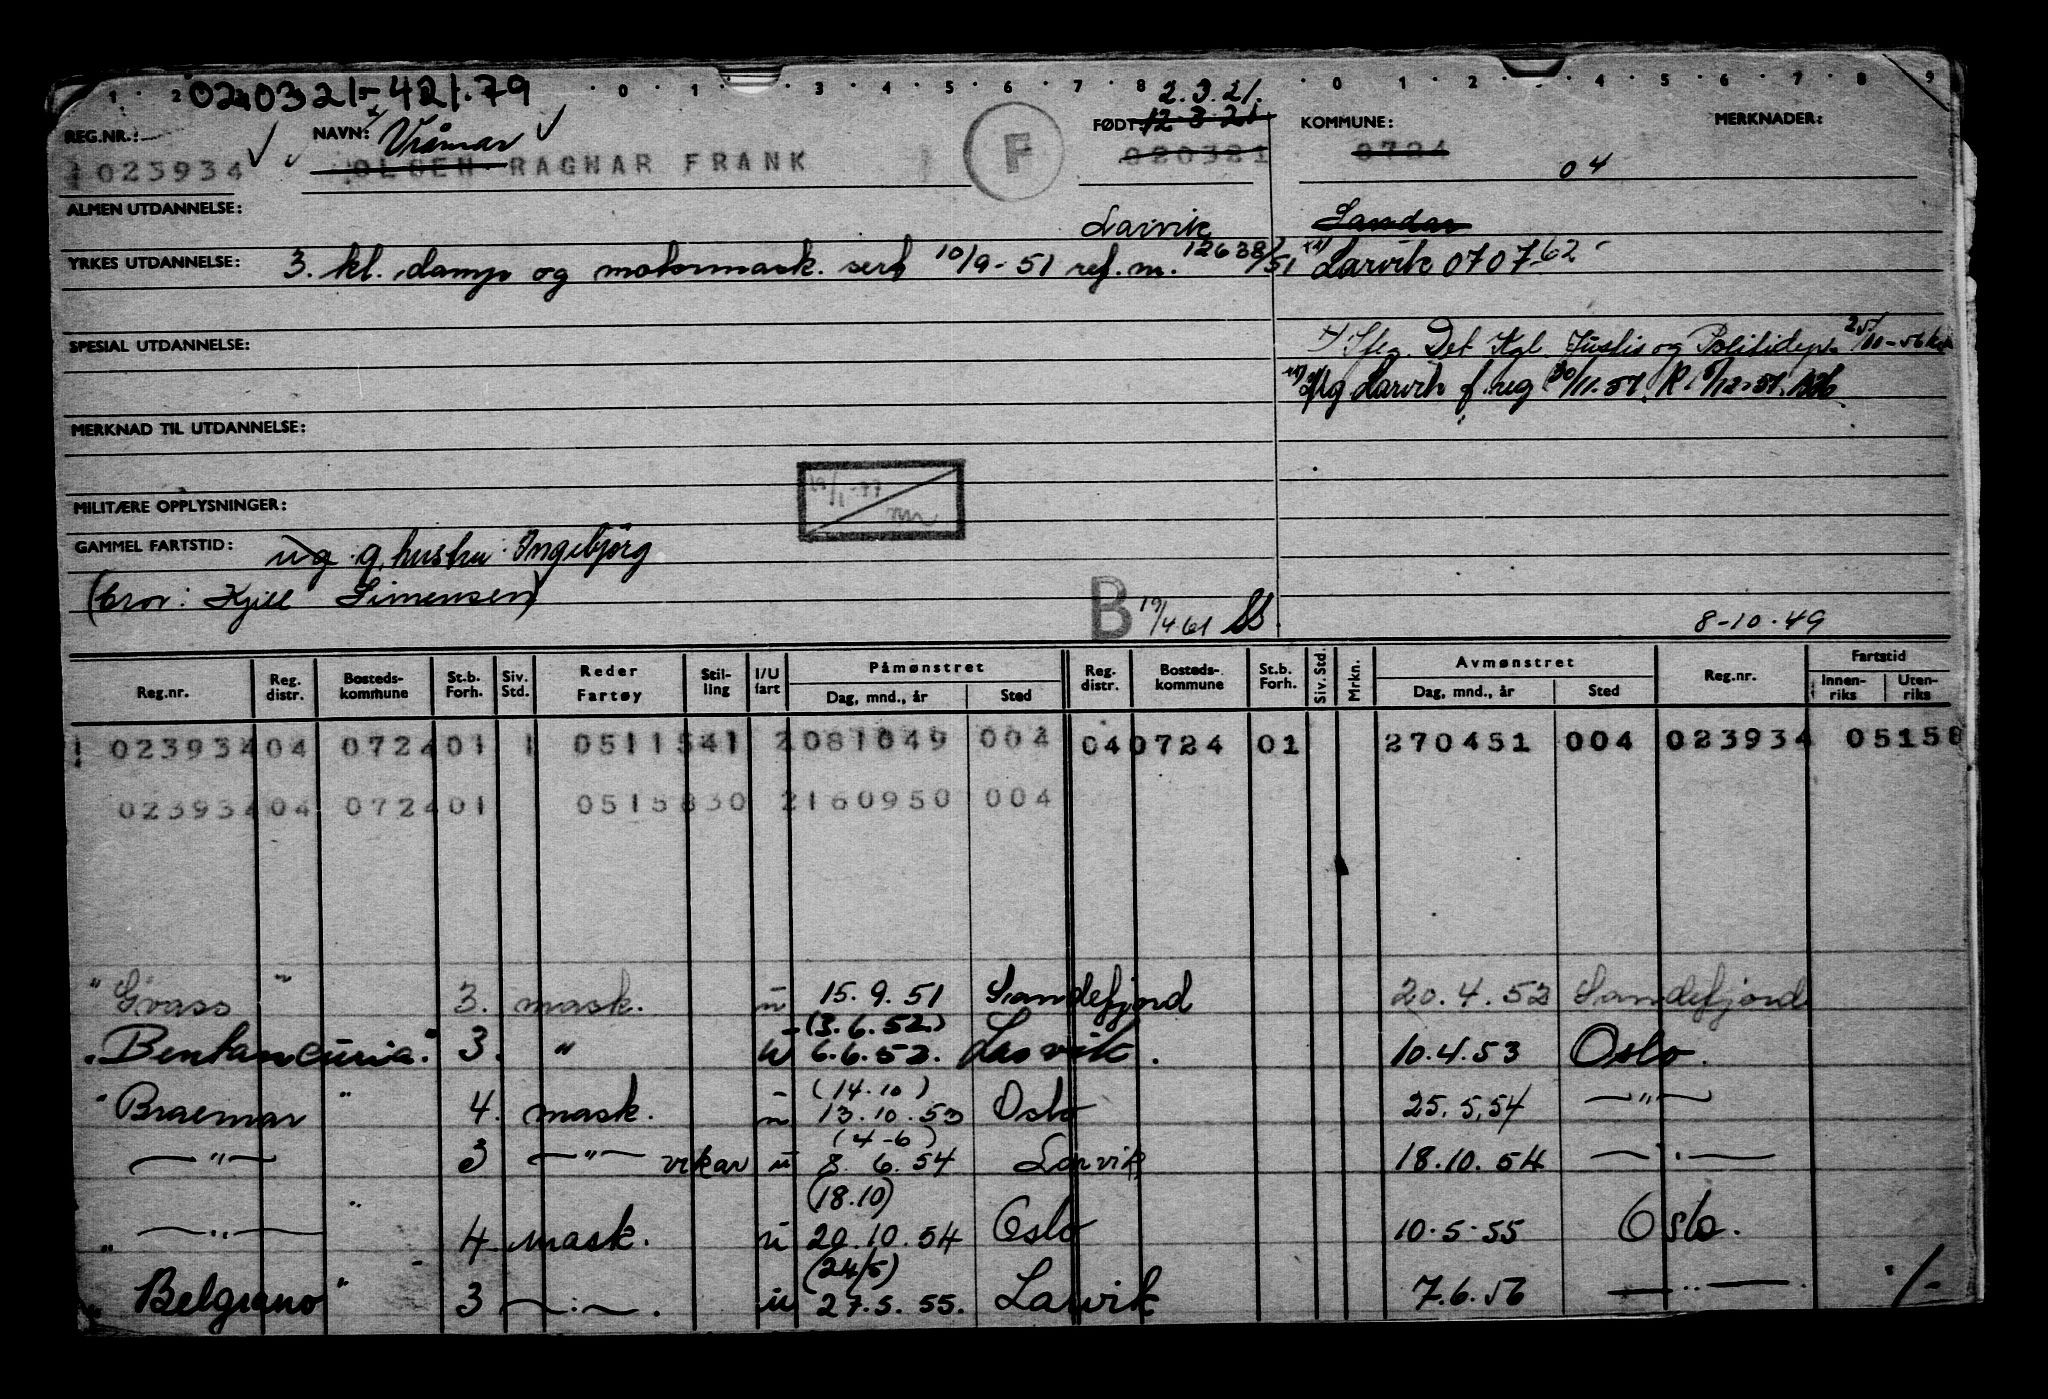 1 · 2 0 · 1 · 3 · 4 · 5 · 6 · 7 · 8 · 0 · 1 · 2 · 4 · 5 · 6 · 7 · 8 · 9
020321-421.79
2.3.21.
REG.NR.: NAVN: Vråmar FØDT: 12-3-21 KOMMUNE: MERKNADER:
023934 OLSEN RAGNAR FRANK F 020321 0724 04
ALMEN UTDANNELSE: Larvik Sandar
YRKES UTDANNELSE: 3. kl. damp og motormask. sert 10/9-51 ref. nr. 12638/51 Larvik 0707-62
SPESIAL UTDANNELSE: Det Kgl. Justis og Politidep. 25/10-56
Larvik f. reg 30/11.57. R.
MERKNAD TIL UTDANNELSE:
MILITÆRE OPPLYSNINGER:
GAMMEL FARTSTID: ug g. hustru Ingebjørg
(bror: Kjell Simensen) B 19/4 61 8-10.49
Reg.nr. Reg. distr. Bosteds-kommune St.b. Forh. Siv. Std. Reder Fartøy Stil-ling I/U fart Påmønstret Dag, mnd., år Sted Reg. distr. Bosteds-kommune St.b. Forh. Siv. Std. Mrkn. Avmønstret Dag, mnd., år Sted Reg.nr. Fartstid Innen-riks Uten-riks
023934 04 0724 01 1 0511541 2 081049 004 04 0724 01 270451 004 023934 05158
023934 04 0724 01 0515830 2 160950 004
"Gvass" 3. mask. u 15.9.51 Sandefjord 20.4.52 Sandefjord
(3.6.52.)
"Bentancuria." 3. " u 6.6.52. Larvik. 10.4.53 Oslo.
(14.10)
"Braemar" 4. mask. u 13.10.53 Oslo 25.5.54 —"—
(4-6)
—"— 3 —"— vikar u 8.6.54 Larvik 18.10.54 —"—
(18.10)
"—"—" 4 mask. u 20.10.54 Oslo 10.5.55 Oslo.
(24/5)
"Belgrano" 3 —"—. u 27.5.55. Larvik 7.6.56 —"— ./-